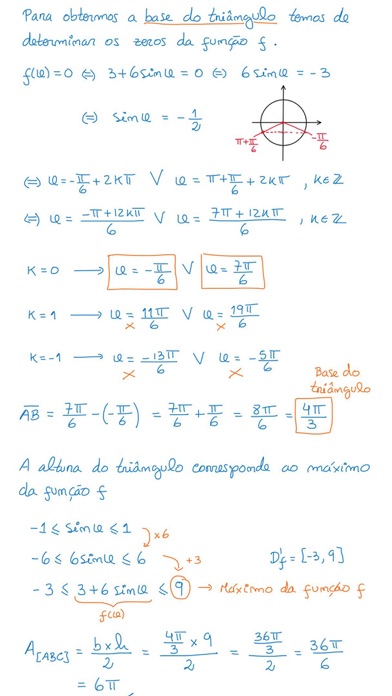 Para obtermos a base do triângulo temos de
determinar os zeros da função f.
f(x)=0 ⇔ 3+6sinx=0 ⇔ 6sinx=-3
⇔ sinx = -1/2
π+π/6
-π/6
⇔ x=-π/6+2kπ ∨ x=π+π/6+2kπ, k∈ℤ
⇔ x= (-π+12kπ)/6 ∨ x= (7π+12kπ)/6, k∈ℤ
k=0 ⟶ x=-π/6 ∨ x=7π/6
k=1 ⟶ x=11π/6 ∨ x=19π/6
× ×
k=-1 ⟶ x=-13π/6 ∨ x=-5π/6
× ×
Base do
triângulo
AB = 7π/6-(-π/6) = 7π/6+π/6 = 8π/6 = 4π/3
A altura do triângulo corresponde ao máximo
da função f
-1 ≤ sinx ≤ 1
×6
-6 ≤ 6sinx ≤ 6
+3
D'f = [-3,9]
-3 ≤ 3+6sinx ≤ 9 → Máximo da função f
f(x)
A[ABC] = (b×h)/2 = (4π/3 × 9)/2 = (36π/3)/2 = 36π/6
= 6π